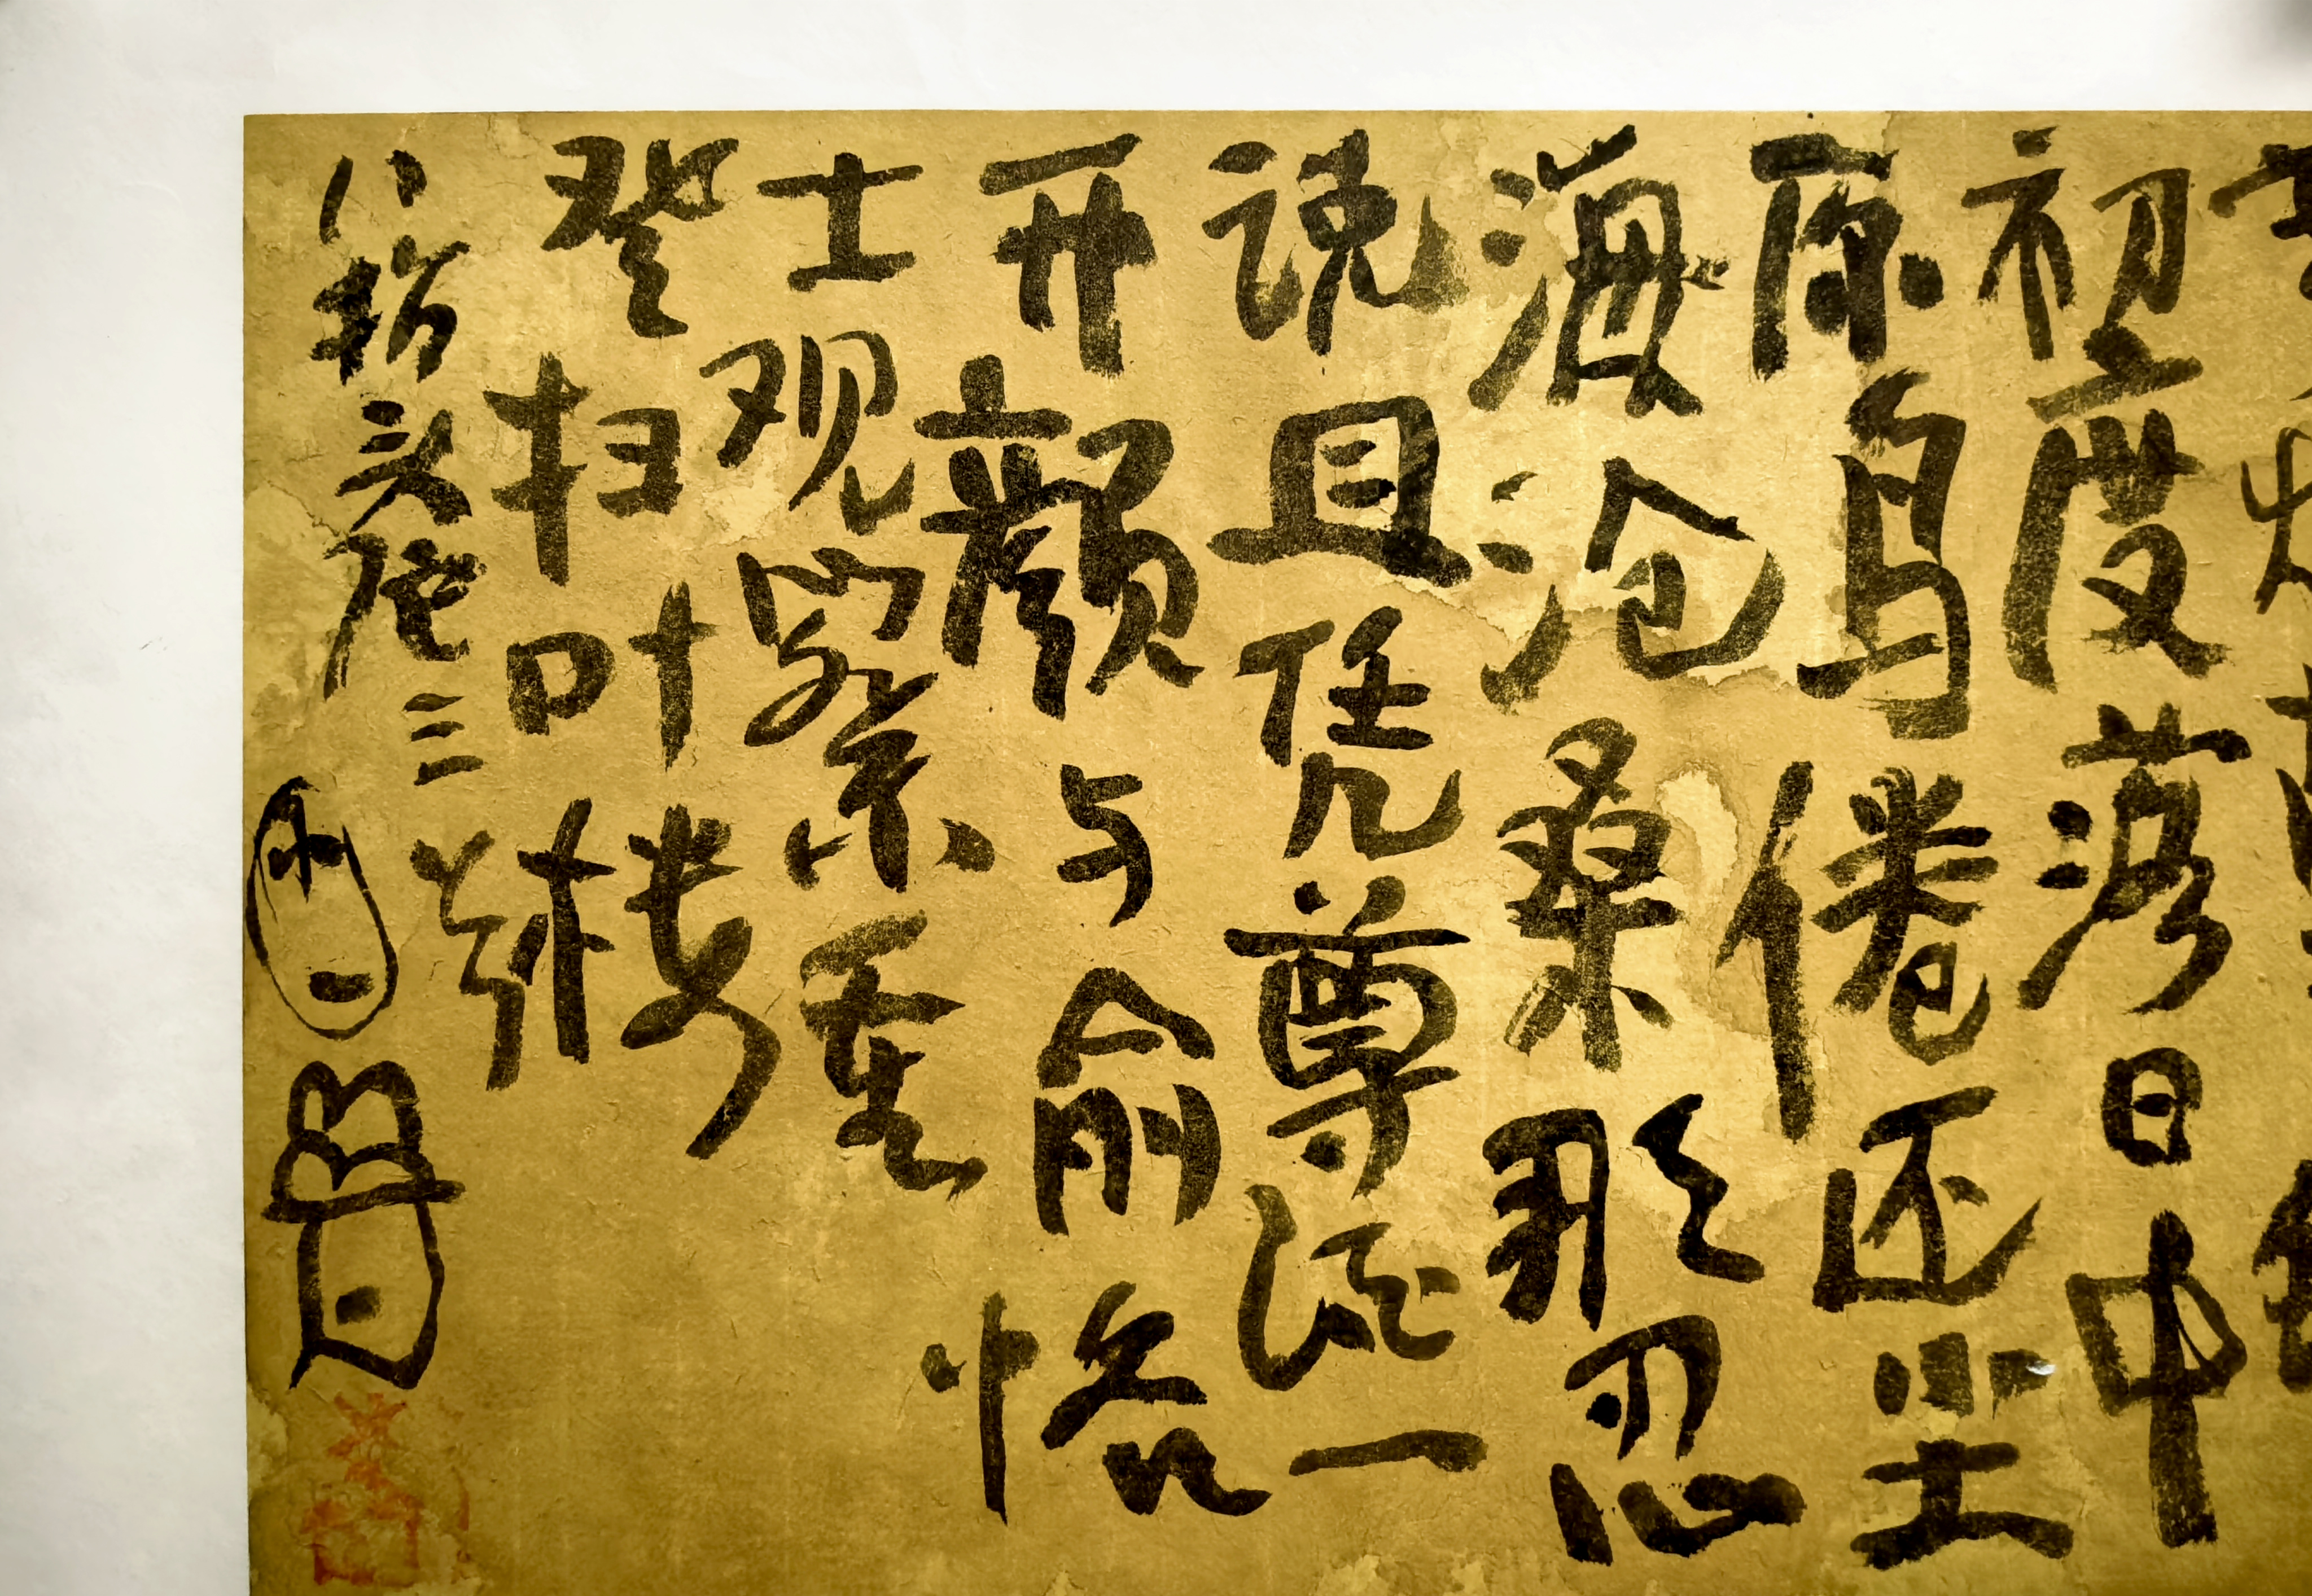 初度落日中
原鸟倦还坐
海沧桑那忍
说且凭尊酒一
开颜与俞恪
士观察重
登扫叶楼
八指头陀三